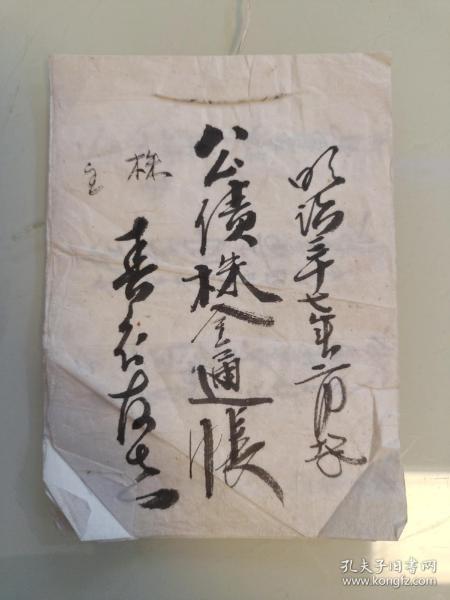 明治三十七年二月起
公债株金通帳
株主
春
孔夫子旧书网
www.kongfz.com